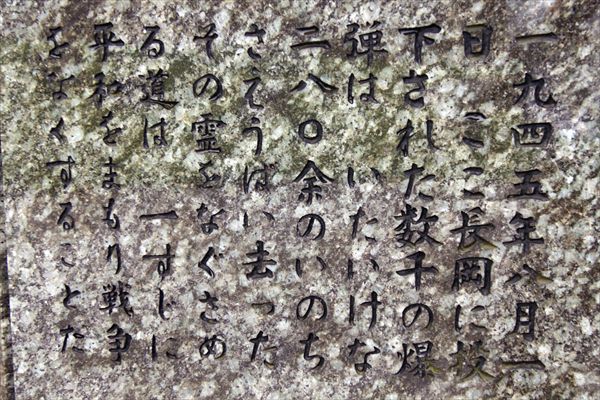 一九四五年八月一
日 ここ長岡に投
下された数千の爆
弾は いたいけな
二八〇余のいのち
さえうばい去った
その霊をなぐさめ
る道は 一すじに
平和をまもり戦争
をなくすることだ